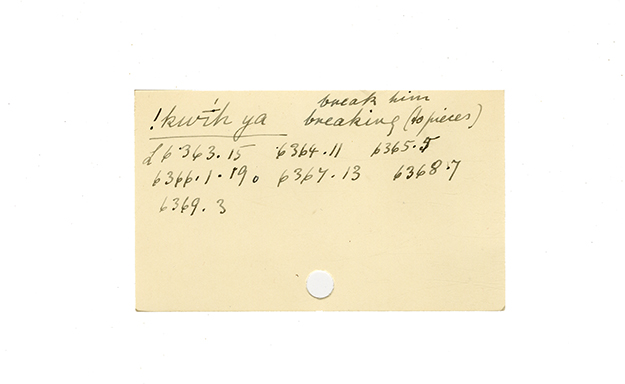 break him
!kwĩḱ ya breaking (to pieces)
L 6363.15 6364.11 6365.5
6366.1.19. 6367.13 6368.7
6369.3